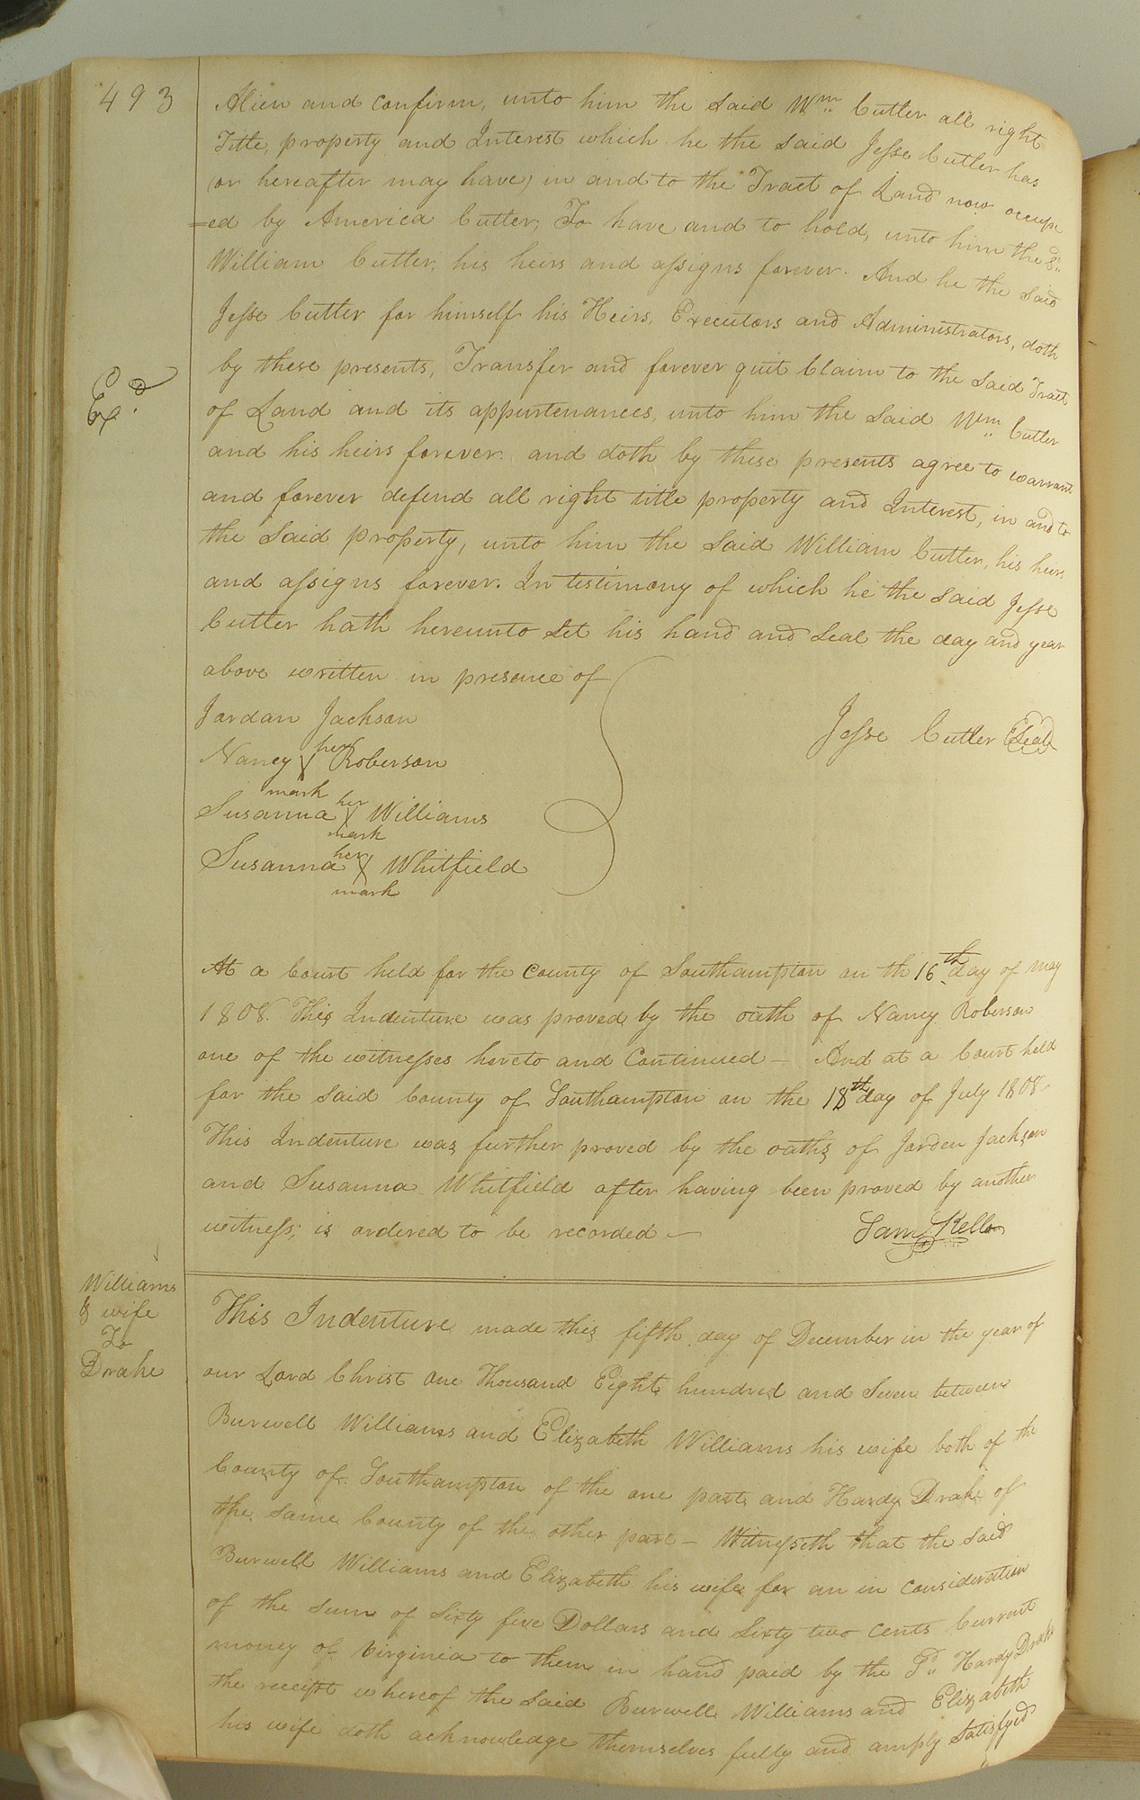 493
Alien and confirm, unto him the said Wm Cutler all right
Title, property and Interest which he the said Jesse Cutler has
(or hereafter may have) in and to the Tract of Land now occupi
=ed by America Cutler, To have and to hold, unto him the sd
William Cutler, his heirs and assigns forever. And he the said
Jesse Cutler for himself his Heirs, Executors and Administrators, doth
by these presents, Transfer and forever quit Claim to the said Tract
Exd
of Land and its appurtenances, unto him the said Wm Cutler
and his heirs forever. and doth by these presents agree to warrant
and forever defend all right title property and Interest, in and to
the said property, unto him the said William Cutler, his heirs
and assigns forever. In testimony of which he the said Jesse
Cutler hath hereunto set his hand and seal the day and year
above written in presence of
Jordan Jackson
Jesse Cutler (Seal)
her
Nancy X Roberson
mark
her
Susanna X Williams
mark
her
Susanna X Whitfield
mark
At a Court held for the County of Southampton on th 16th day of may
1808. This Indenture was proved by the oath of Nancy Roberson
one of the witnesses hereto and Continued - And at a Court held
for the said County of Southampton on the 18th day of July 1808
This Indenture was further proved by the oaths of Jorden Jackson
and Susanna Whitfield after having been proved by another
witness, is ordered to be recorded -
Sam Kello
Williams
& wife
To
Drake
This Indenture made this fifth day of December in the year of
our Lord Christ One Thousand Eight hundred and Seven between
Burwell Williams and Elizabeth Williams his wife both of the
County of Southampton of the one part and Hardy Drake of
the same County of the other part - Witnesseth that the said
Burwell Williams and Elizabeth his wife for an in consideration
of the sum of Sixty five Dollars and Sixty two cents Currant
money of Virginia to them in hand paid by the Sd Hardy Drake
the receipt whereof the said Burwell Williams and Elizabeth
his wife doth acknowledge themselves fully and amply Satisfyed